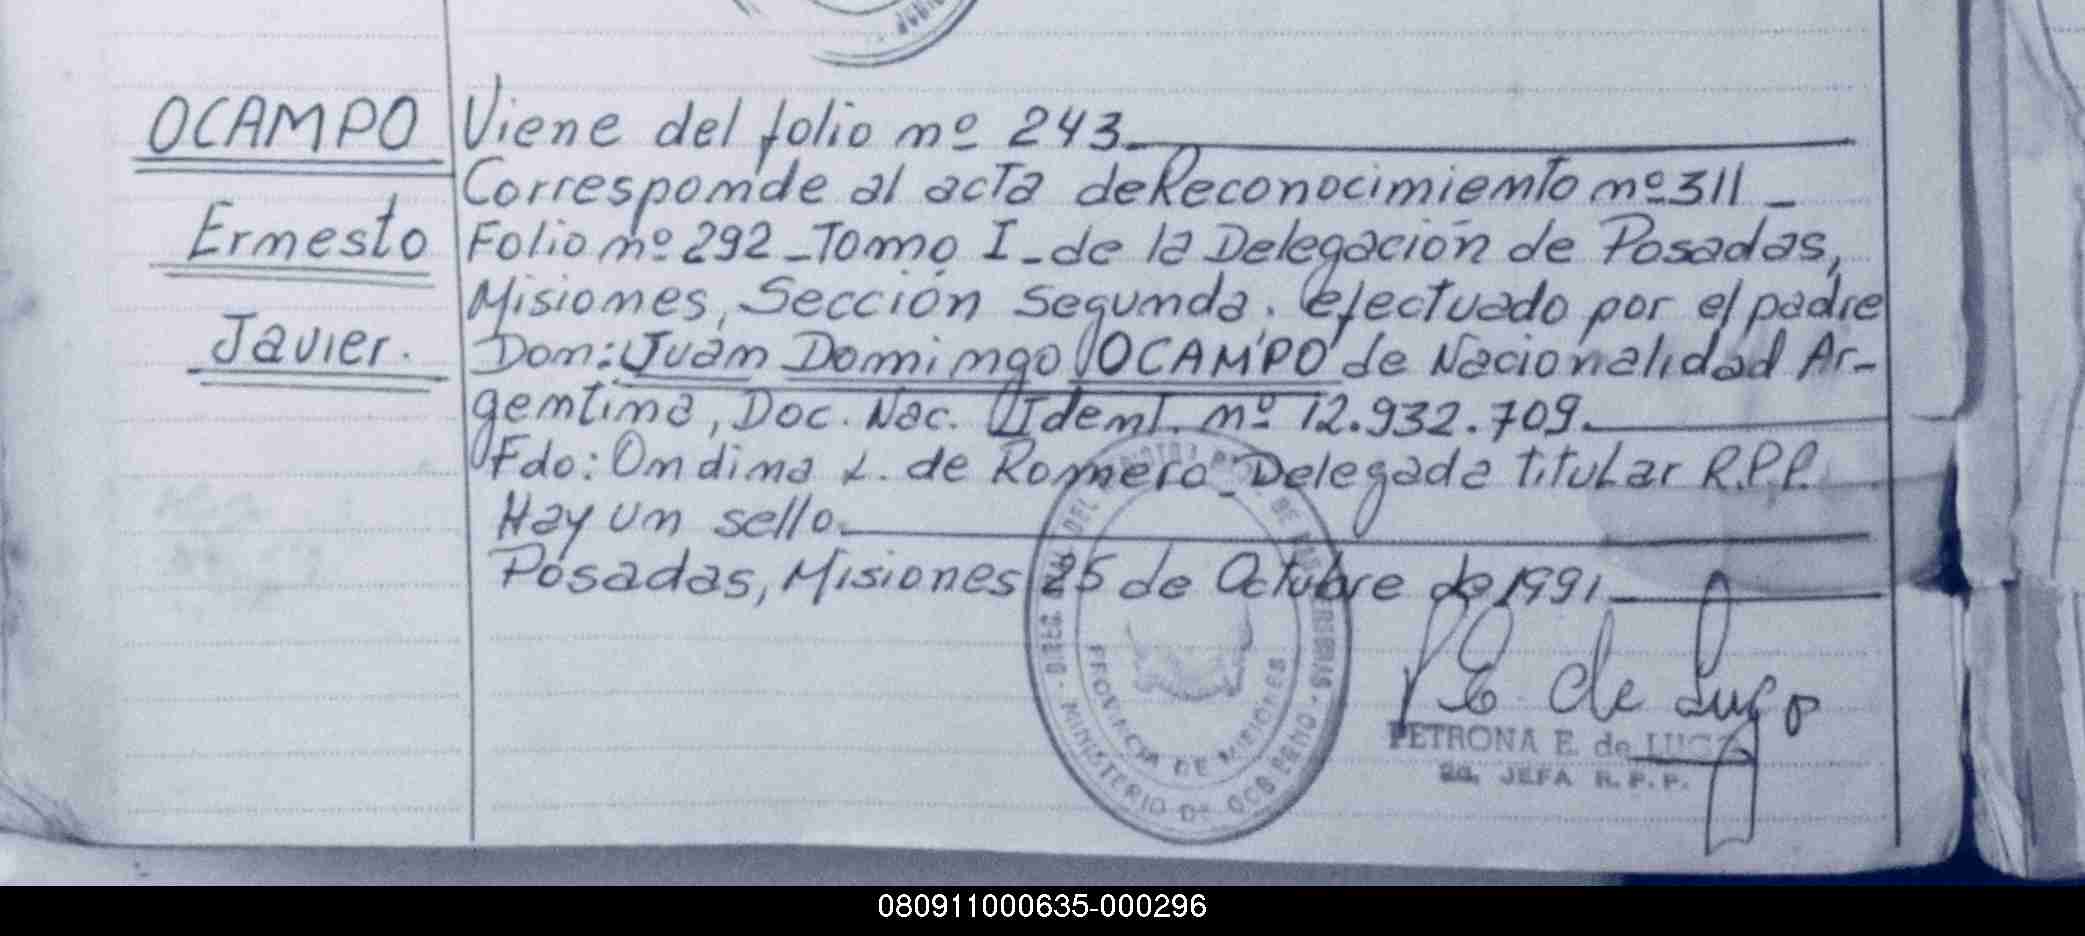 OCAMPO
Ernesto
Javier.
Viene del folio nº 243.
Corresponde al acta de Reconocimiento nº 311 _
Folio nº 292 _ Tomo I _ de la Delegación de Posadas,
Misiones, Sección Segunda. efectuado por el padre
Don: Juan Domingo OCAMPO de Nacionalidad Ar-
gentina, Doc. Nac. Ident. nº 12.932.709.
Fdo: Ondina L. de Romero _ Delegada titular R.P.P.
Hay un sello.
Posadas, Misiones 25 de Octubre de 1991
PROVINCIA DE MISIONES
MINISTERIO DE
P E. de Lugo
PETRONA E. de LUGO
JEFA R.P.P.
080911000635-000296